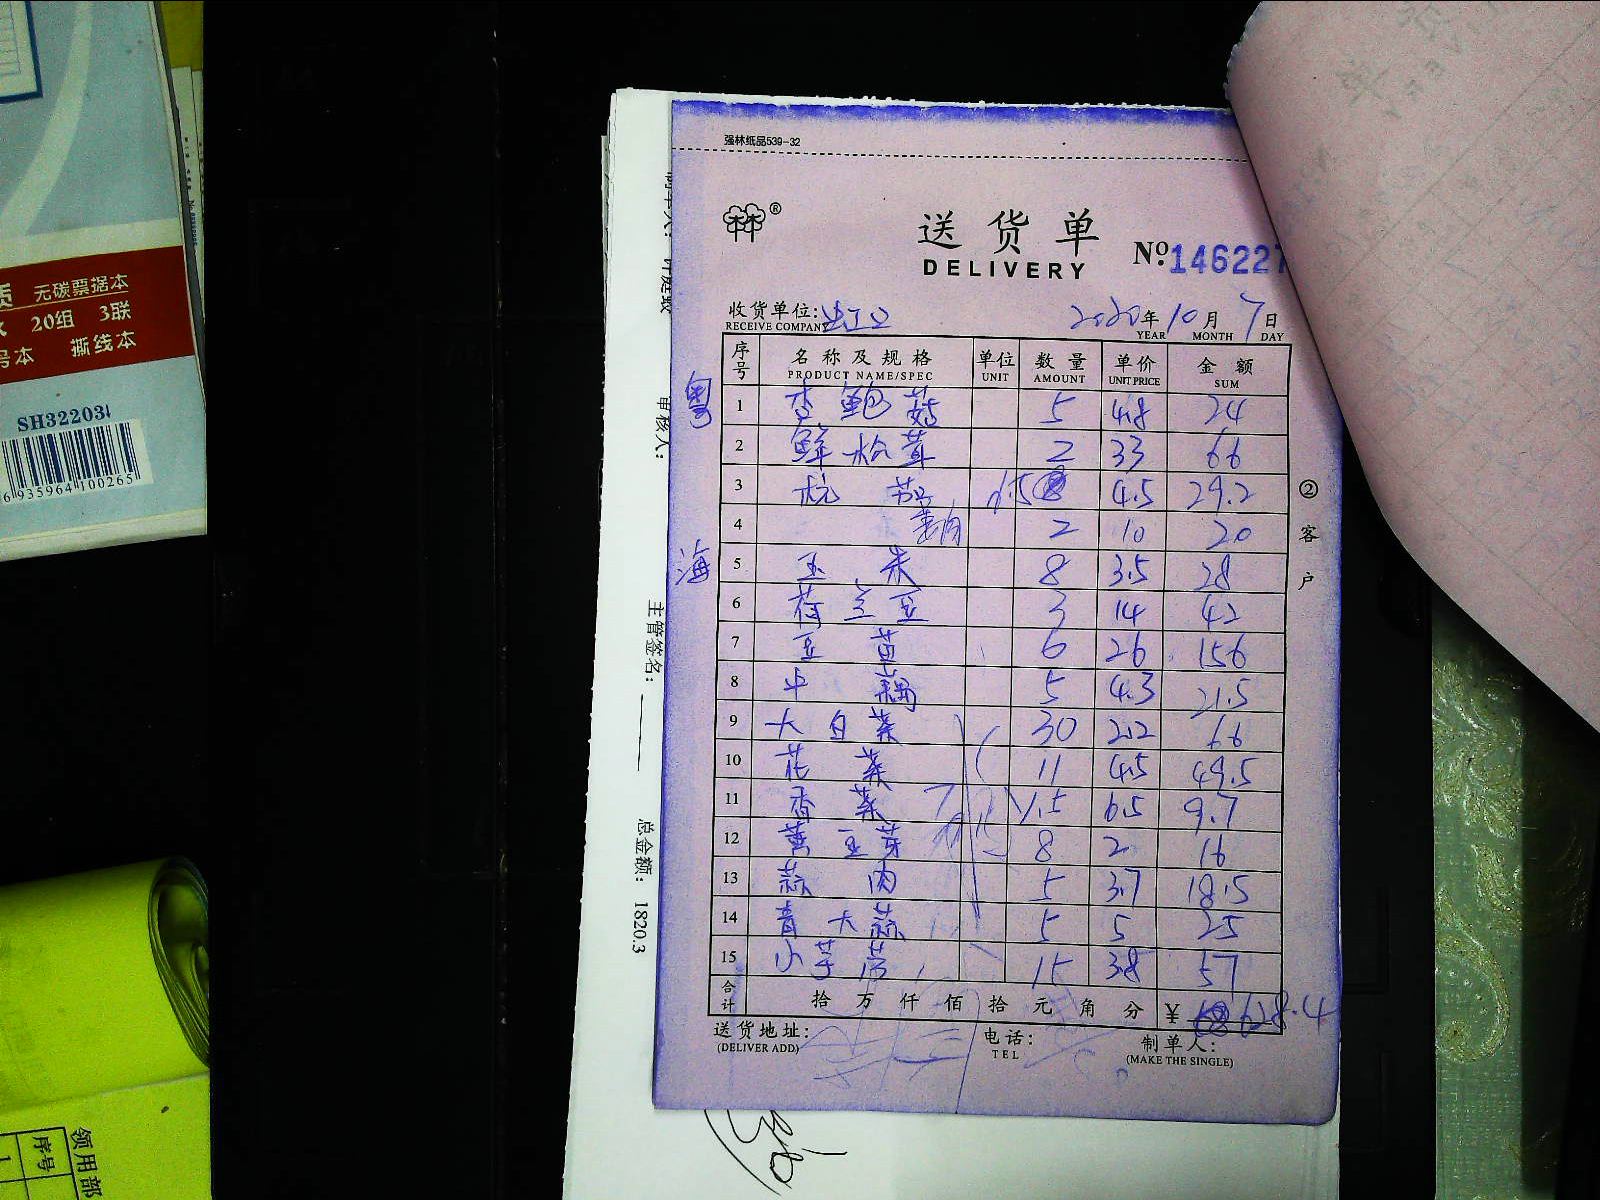 强林纸品539-32
送货单
DELIVERY
№:146227
收货单位:
RECEIVE COMPANY
2020年10月7日
YEAR MONTH DAY
序号 名称及规格 单位 数量 单价 金额
PRODUCT NAME/SPEC UNIT AMOUNT UNIT PRICE SUM
1 杏鲍菇 5 4.8 24
2 鲜松茸 2 33 66
3 杭茄 6.5 4.5 29.2
4 2 10 20
5 玉米 8 3.5 28
6 荷兰豆 3 14 42
7 豆苗 6 26 156
8 5 4.3 21.5
9 大白菜 30 2.2 66
10 花菜 11 4.5 49.5
11 香菜 1.5 6.5 9.7
12 黄豆芽 8 2 16
13 蒜肉 5 3.7 18.5
14 青大蒜 5 5 25
15 小芋艿 15 3.8 57
合计 拾万仟佰拾元角分 ¥ 628.4
送货地址:
(DELIVER ADD)
电话:
TEL
制单人:
(MAKE THE SINGLE)
②客户
粤
海
审核人:
主管签名:
总金额: 1820.3
无碳票据本
20组 3联
号本 撕线本
SH32203
6935964100265
领用部
序号
1